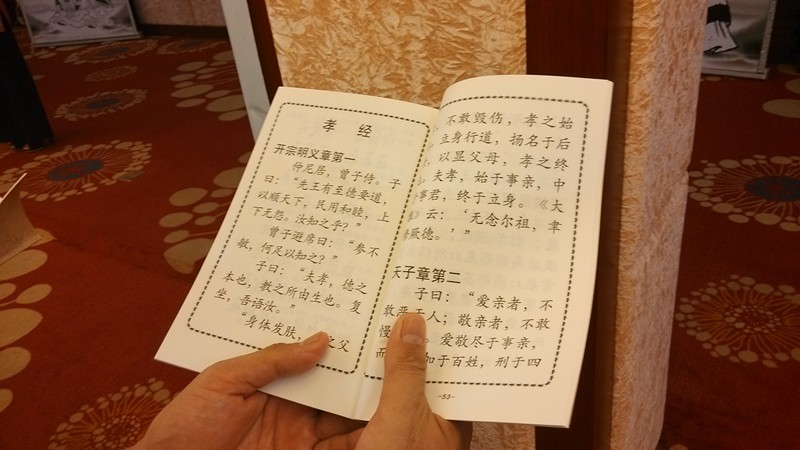 孝 经
开宗明义章第一
仲尼居，曾子侍。子
曰：“先王有至德要道，
以顺天下，民用和睦，上
下无怨。汝知之乎？”
曾子避席曰：“参不
敏，何足以知之？”
子曰：“夫孝，德之
本也，教之所由生也。复
坐，吾语汝。”
“身体发肤，之父
不敢毁伤，孝之始
立身行道，扬名于后
，以显父母，孝之终
。夫孝，始于事亲，中
事君，终于立身。《大
》云：‘无念尔祖，聿
厥德。’”
天子章第二
子曰：“爱亲者，不
敢恶于人；敬亲者，不敢
慢。爱敬尽于事亲，
而加于百姓，刑于四
-55-